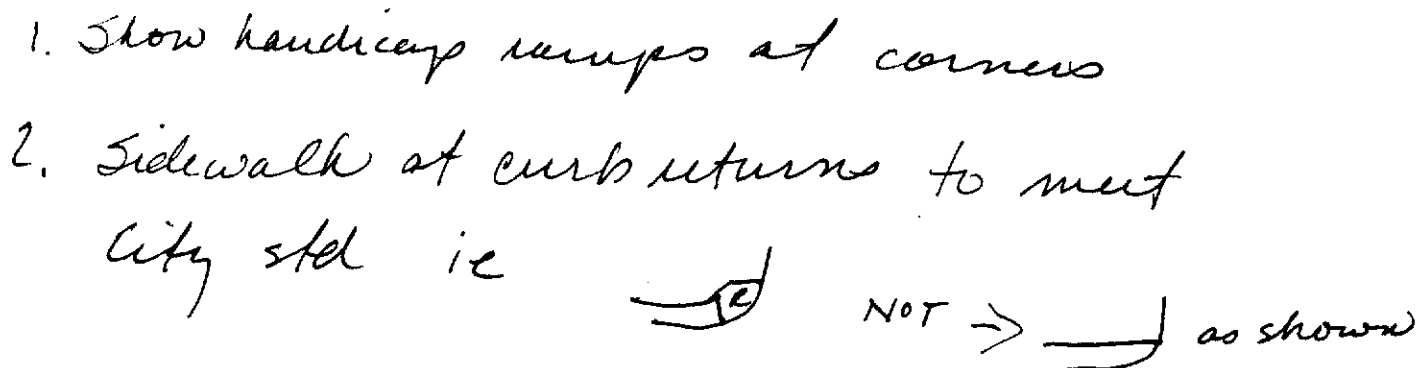 1. Show handicap ramps at corners
2. Sidewalk at curb returns to meet
City std ie NOT => as shown